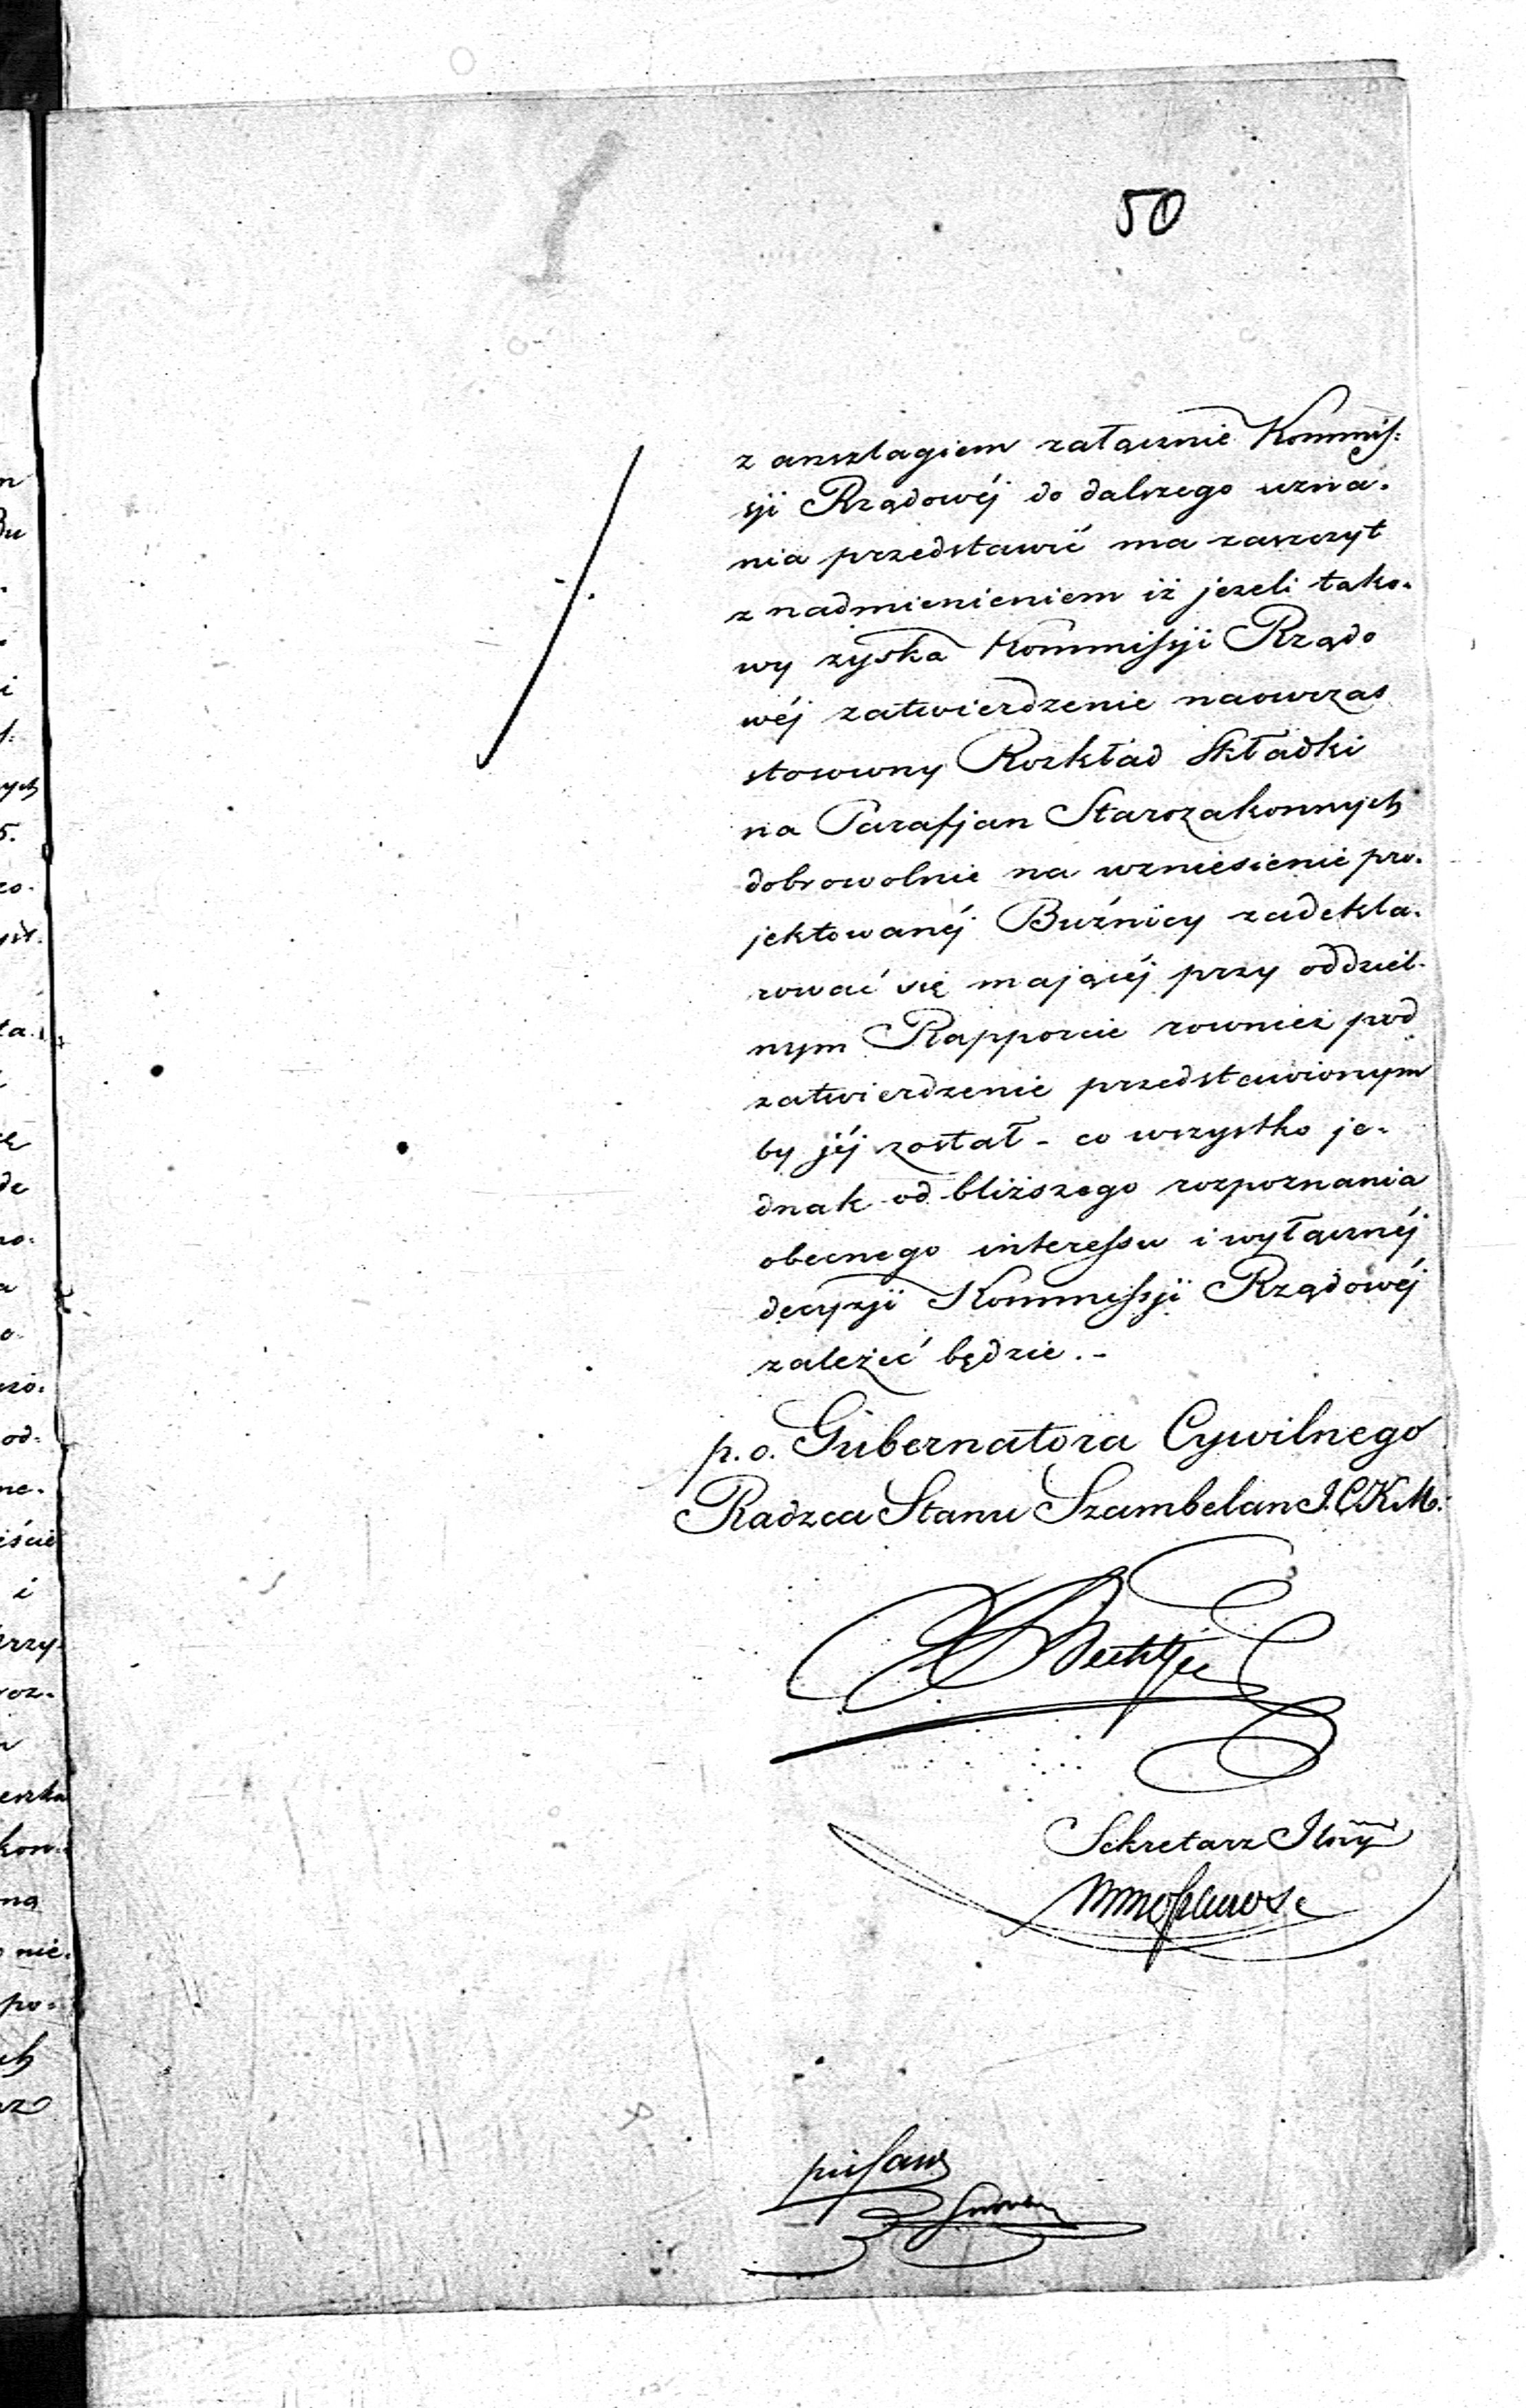 50
z anszlagiem załącznie Kommis:
sji Rządowéj do dalszego uzna-
nia przedstawić ma zaszczyt
z nadmienieniem iż jezeli tako-
wy zyska Kommissji Rządo
wéj zatwierdzenie naowczas
stosowny Rozkład Składki
na Parafjan Starozakonnych
dobrowolnie na wzniesienie pro-
jektowanéj Buźnicy zadekla-
rować się mającéj przy oddziel-
nym Rapporcie rownież pod
zatwierdzenie przedstawionym
by jéj został - co wszystko je-
dnak od bliższego rozpoznania
obecnego interessu i wyłącznéj
decyzji Kommissji Rządowéj
zależeć będzie.-
p.o. Gubernatora Cywilnego
Radzca Stanu Szambelan J.C.K.M.
Sekretarz